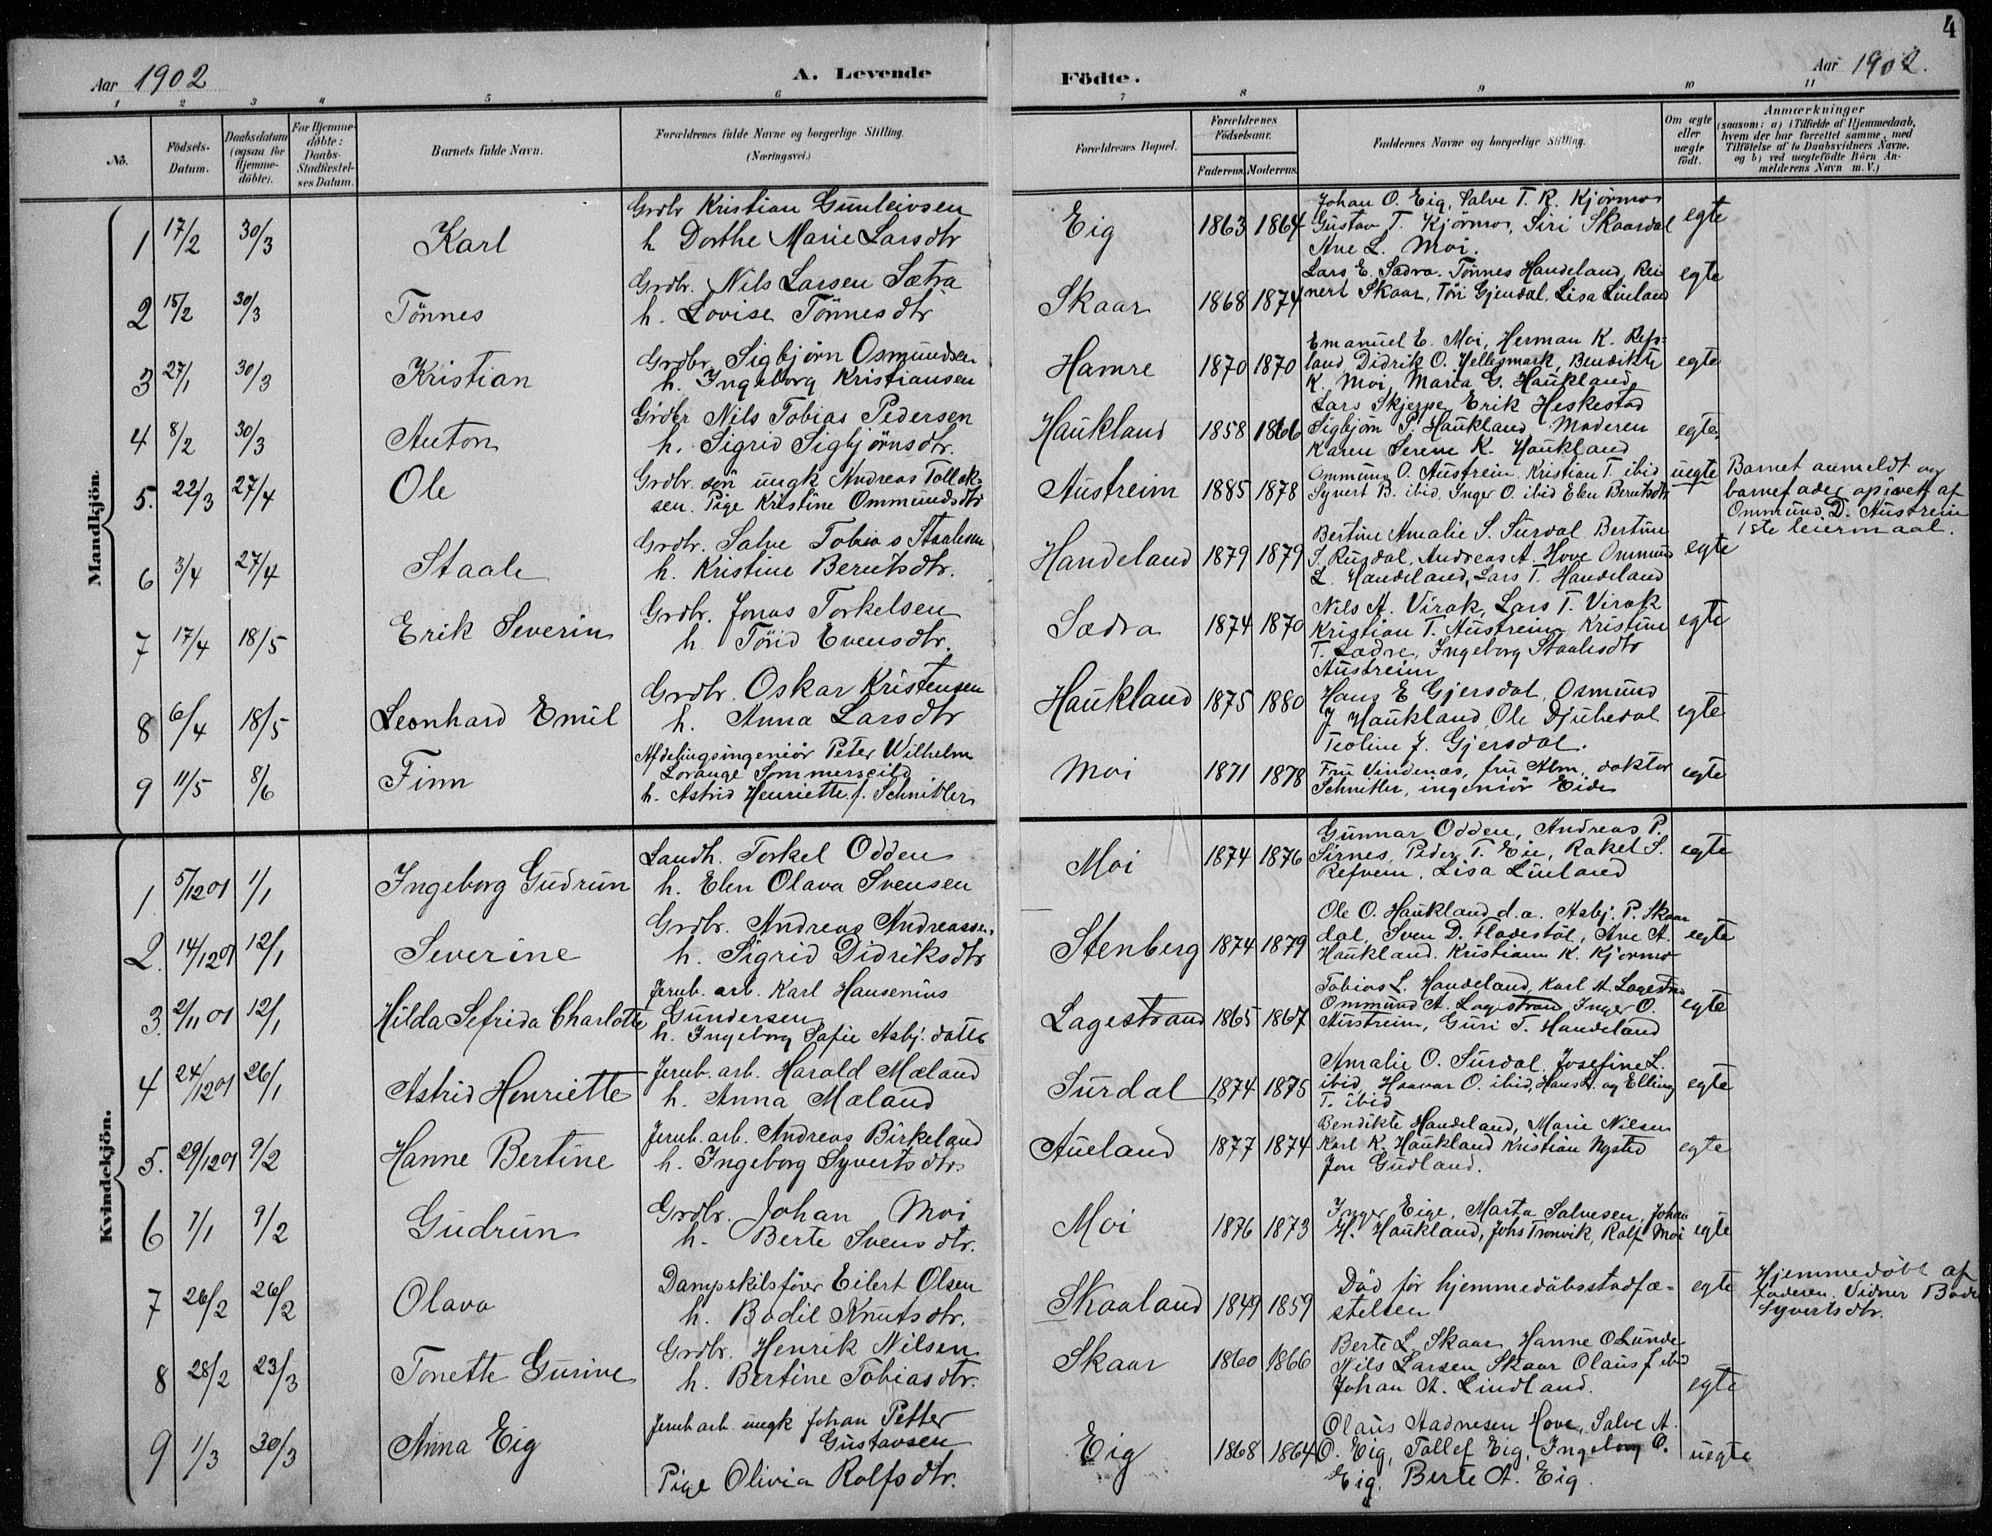 4
Aar 1902
A. Levende
Födte.
Aar 1902.
1 2 3 4 5 6 7 8 9 10 11
No.
Födsels-Datum.
Daabsdatum (ogsaa for Hjemme-döbte).
For Hjemme-döbte: Daabs-Stadfæstel-ses Datum.
Barnets fulde Navn.
Forældrenes fulde Navne og borgerlige Stilling.
(Næringsvei.)
Forældrenes Bopæl.
Forældrenes Födselsaar.
Faderens.
Moderens.
Faddernes Navne og borgerlige Stilling.
Om ægte eller uægte födt.
Anmærkninger
(saasom: a) i Tilfælde af Hjemmedaab,
hvem der har forrettet samme, med
Tilföielse af to Daabsvidners Navne.
og b) ved uægtefödte Börn An-
melderens Navn m. V.)
Mandkjön.
1 17/2 30/3 Karl
Grdbr Kristian Gunleivsen
h. Dorthe Marie Larsdtr
Eig 1863 1864
Johan O. Eig, Salve T. R. Kjörmo
Gustav T. Kjörmo, Siri Skaardal
Ane L. Moi.
egte
2 15/2 30/3 Tönnes
Grdbr. Nils Larsen Sætra
h. Lovise Tönnesdtr
Skaar 1868 1874
Lars E. Sædra. Tönnes Handeland, Rei
nert Skaar, Töri Gjendal, Lisa Liuland
egte
3 27/1 30/3 Kristian
Grdbr. Sigbjörn Osmundsen
h. Ingeborg Kristiansen
Hamre 1870 1870
Emanuel E. Moi, Herman K. Refs-
land, Didrik O. Hellesmark, Bendikte
K. Moi, Maria G. Haukland
egte
4 8/2 30/3 Anton
Grdbr Nils Tobias Pedersen
h. Sigrid Sigbjörnsdtr.
Haukland 1858 1866
Lars Skjerpe, Erik Heskestad
Sigbjörn P. Haukland Moderen
Karen Serene K. Haukland
egte.
5. 22/3 27/4 Ole
Grdbr. sön ungk Andreas Tollak-
sen. Pige Kristine Ommundsdtr
Austreim 1885 1878
Ommund O. Austreim, Kristian T. ibid
Syvert B. ibid, Inger O. ibid Elen Beruksdtr
uegte
Barnet anmeldt og
barnefader opgivet af
Ommund D. Austreim
1ste leiermaal.
6 3/4 27/4 Staale
Grdbr. Salve Tobias Staalesen
h. Kristine Berentsdtr.
Handeland 1879 1879
Bertine Amalie S. Surdal Bertine
S. Rusdal, Andreas A. Hove Ommund
L. Handeland, Lars T. Handeland
egte
7 17/4 18/5 Erik Severin
Grdbr. Jonas Torkelsen
h. Törid Evensdtr.
Sædra 1874 1870
Nils A. Virak, Lars T. Virak
Kristian T. Austreim Kristine
T. Sædre, Ingeborg Staalesdtr
Austreim
egte
8 6/4 18/5 Leonhard Emil
Grdbr. Oskar Kristensen
h. Anna Larsdtr
Haukland 1875 1880
Hans E Gjersdal, Osmund
J Haukland, Ole Djubedal
Teoline J. Gjersdal.
egte
9 11/5 8/6 Finn
Afdelingsingeniör Peter Wilhelm
Lorange Sommerseild
h. Astrid Henriette f. Schnitler
Moi 1871 1878
Fru Vindenæs, fru Alm, doktor
Schnitler, ingeniör Eide
egte
Kvindekjön.
1 5/12 01 1/1 Ingeborg Gudrun
Landh. Torkel Odden
h. Elen Olava Svensen
Moi 1874 1876
Gunnar Odden, Andreas P.
Sirnes, Peder T. Eie, Rakel S.
Refvem, Lisa Liuland
egte
2. 14/12 01 12/1 Severine
Grdbr. Andreas Andreassen.
h. Sigrid Didriksdtr
Stenberg 1874 1879
Ole O. Haukland d.a. Asbj. P. Skaar
dal, Sven D. Fladestöl, Ane A.
Haukland. Kristiane K. Kjörmo
egte
3. 2/11 01 12/1 Hilda Sefrida Charlotte
Jernb. arb. Karl Hansenius
Gundersen
h. Ingeborg Sofie Asbj. dotte
Lagestrand 1865 1867
Tobias L. Handeland, Karl A. Lagestrand
Ommund A. Lagestrand, Inger O.
Austreim, Guri T. Handeland
egte
4 24/12 01 26/1 Astrid Henriette
Jernb. arb. Harald Mæland
h. Anna Mæland
Surdal 1874 1875
Amalie O. Surdal, Josefine L.
ibid, Haavar O. ibid, Hans A. og Elling
T. ibid
egte
5. 29/12 01 9/2 Hanne Bertine
Jernb. arb. Andreas Birkeland
h. Ingeborg Syvertsdtr.
Aueland 1877 1874
Bendikte Handeland, Marie Nilsen
Karl K. Haukland Kristian Nysted
Jon Gudland.
egte
6 7/1 9/2 Gudrun
Grdbr. Johan Moi
h. Berte Svensdtr.
Moi 1876 1873
Inger Eige, Marta Salvesen, Johan
H. Haukland, Johs Tronvik, Rolf Moi
egte
7 26/2 26/2 Olava
Dampskibsförer Eilert Olsen
h. Bodil Knutsdtr.
Skaaland 1849 1859
Död för hjemmedöbsstadfæ-
stelsen
egte
Hjemmedöbt af
faderen. Vidner Bodil
Syvertsdtr.
8 28/2 23/3 Tonette Gurine
Grdbr. Henrik Nilsen
h. Bertine Tobiasdtr.
Skaar 1860 1866
Berte L. Skaar, Hanne O Lunde
Nils Larsen Skaar Olaus J ibid
Johan A. Lindland.
egte
9 1/3 30/3 Anna Eig
Jernb arb. ungk Johan Petter
Gustavsen
Pige Olivia Rolfsdtr.
Eig 1868 1864
Olaus Aadnesen Hove, Salve A.
O. Eig, Tollef Eig, Ingeborg O.
Eig, Berte A. Eig.
uegte